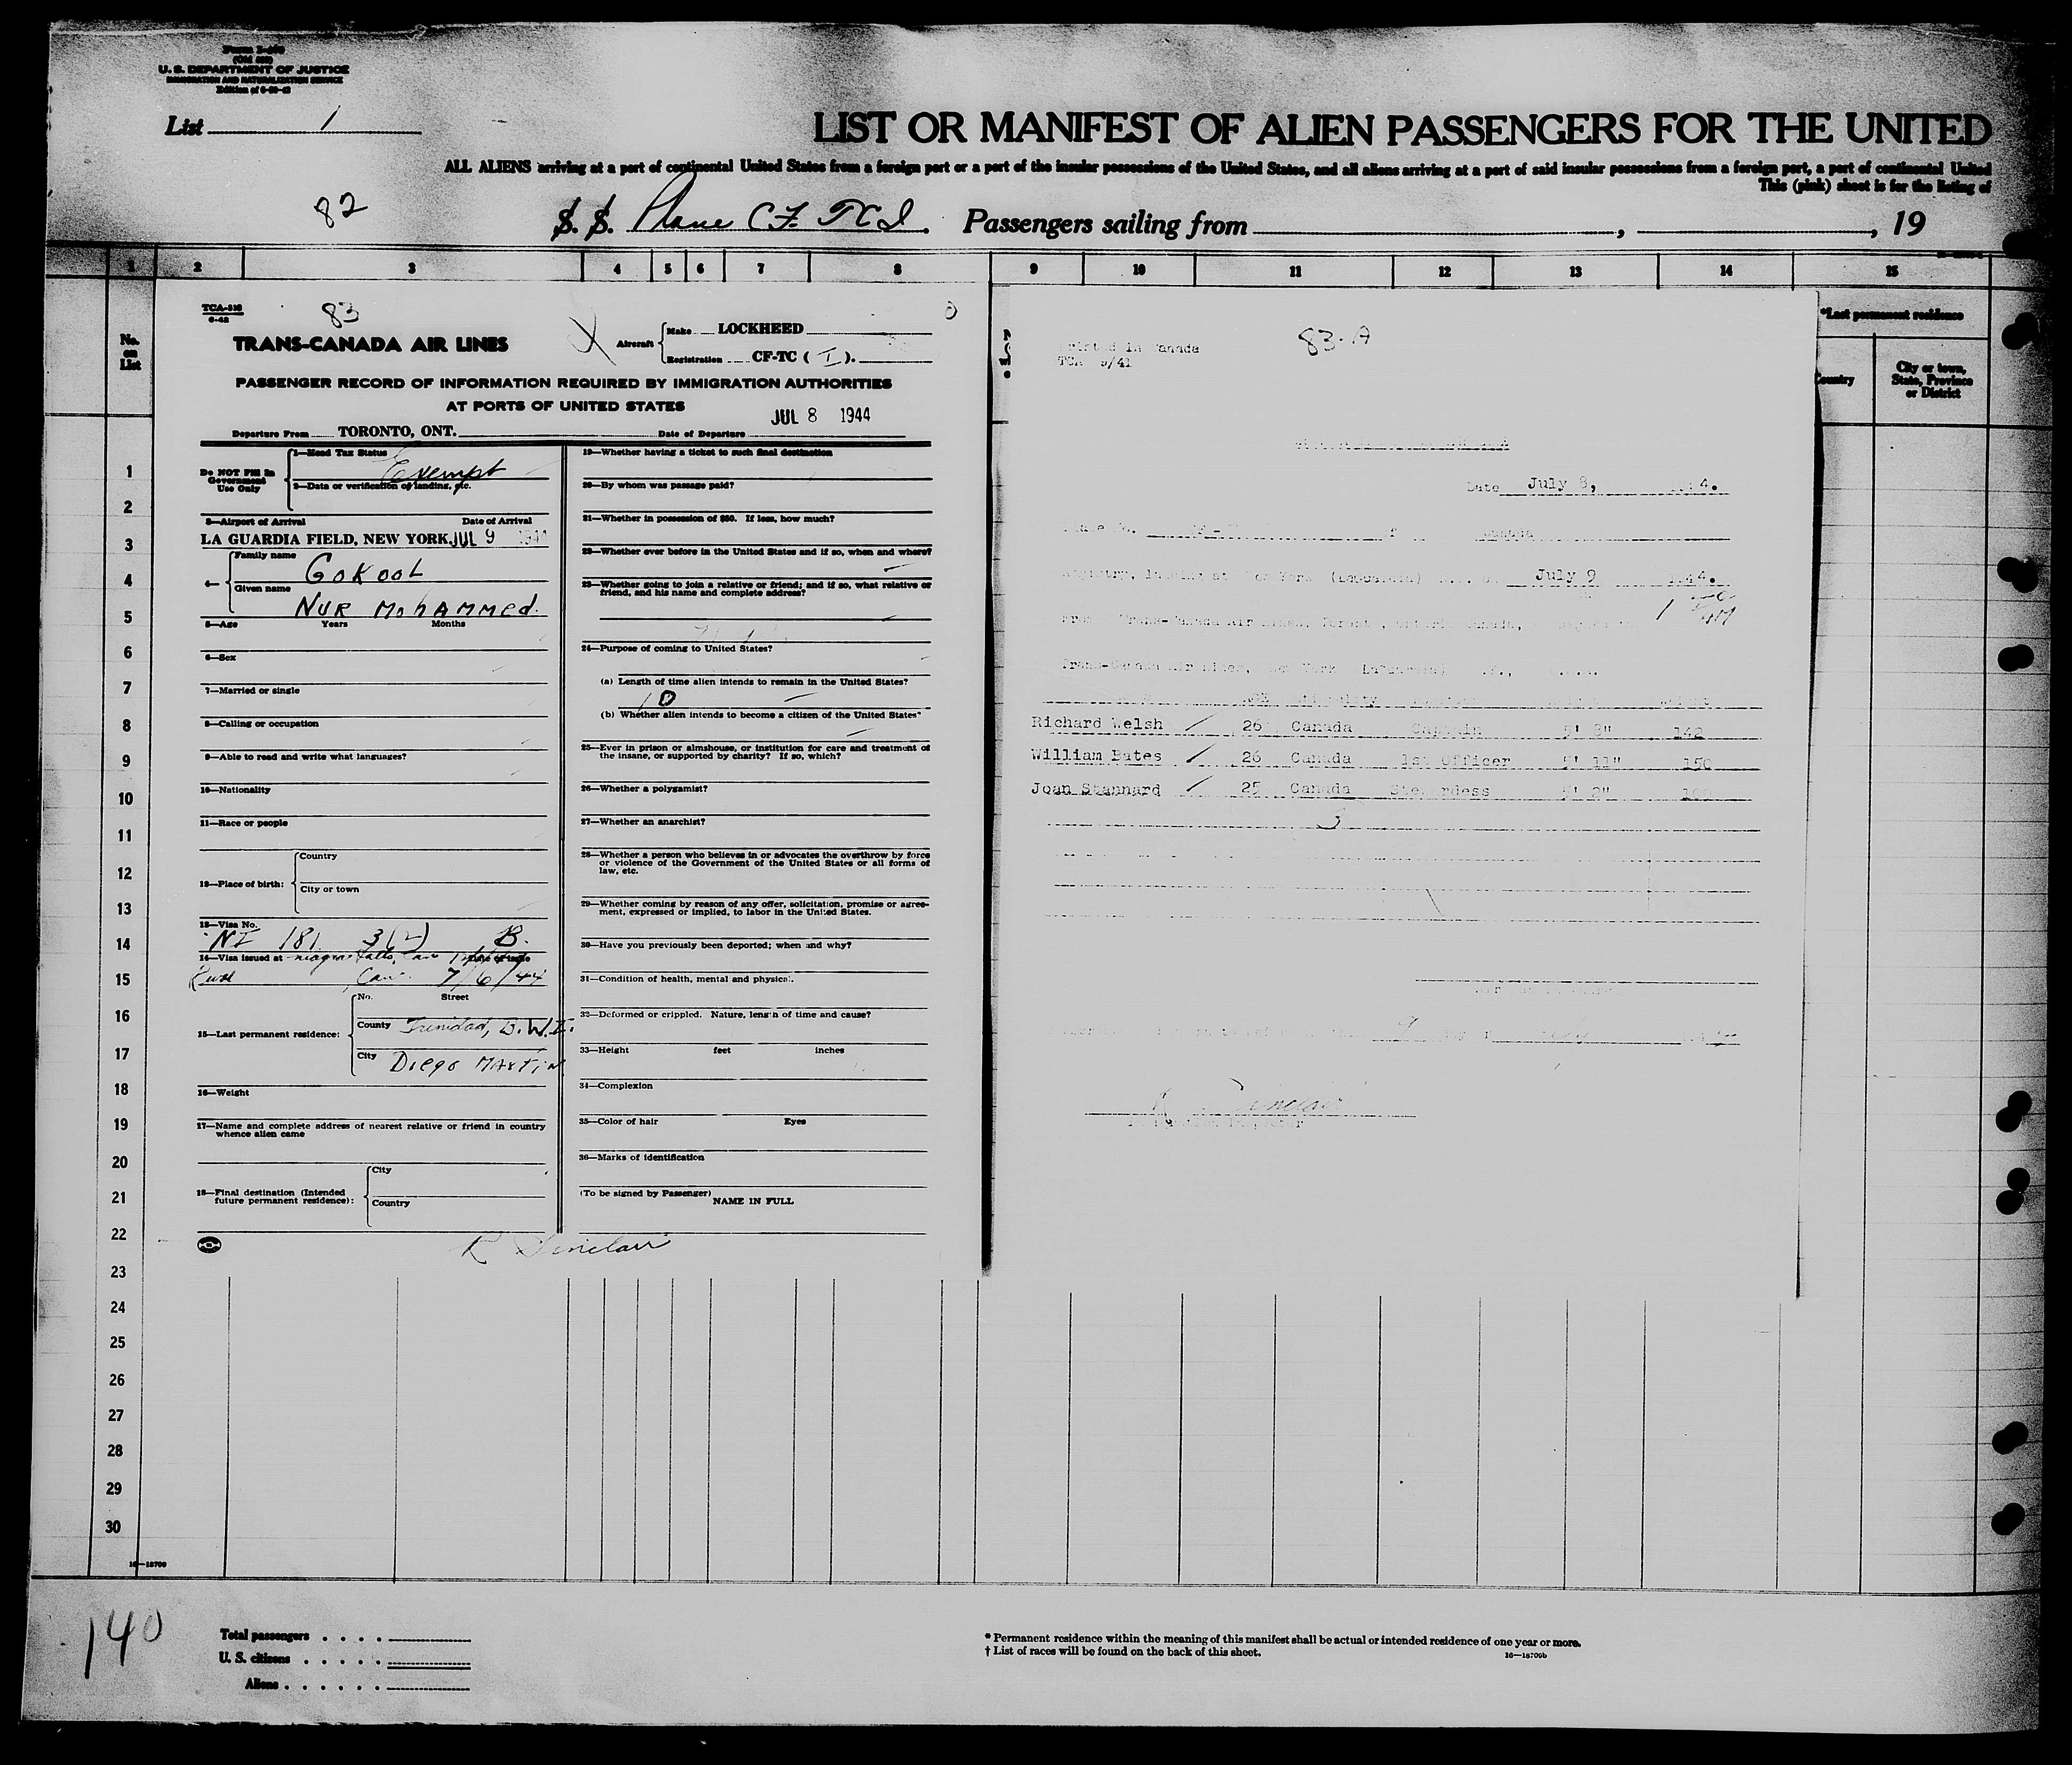 Form I-
U. S. DEPARTMENT OF JUSTICE
IMMIGRATION AND NATURALIZATION SERVICE
Edition of
List 1
LIST OR MANIFEST OF ALIEN PASSENGERS FOR THE UNITED
ALL ALIENS arriving at a port of continental United States from a foreign port or a port of the insular possessions of the United States, and all aliens arriving at a port of said insular possessions from a foreign port, a port of continental United
This (pink) sheet is for the listing of
82
S. S. Plane CF TCI. Passengers sailing from , , 19
1 2 3 4 5 6 7 8 9 10 11 12 13 14 15
No. on List
*Last permanent residence
Country
City or town, State, Province or District
TCA-
6-42
83
TRANS-CANADA AIR LINES
X
Aircraft
Make LOCKHEED
Registration CF-TC ( I ).
PASSENGER RECORD OF INFORMATION REQUIRED BY IMMIGRATION AUTHORITIES
AT PORTS OF UNITED STATES
Departure From TORONTO, ONT. Date of Departure JUL 8 1944
Do NOT Fill In Government Use Only
1—Head Tax Status
Exempt
2—Data or verification of landing, etc.
3—Airport of Arrival Date of Arrival
LA GUARDIA FIELD, NEW YORK JUL 9 1944
4— Family name
GOKOOL
Given name
NUR MohAMMed.
5—Age Years Months
6—Sex
7—Married or single
8—Calling or occupation
9—Able to read and write what languages?
10—Nationality
11—Race or people
12—Place of birth:
Country
City or town
13—Visa No.
NI 181 3(2) B.
14—Visa issued at Niagara Falls, Can Date of Issue
Can. 7/6/44
15—Last permanent residence:
No. Street
County Trinidad, B.W.I.
City Diego MARTIN
16—Weight
17—Name and complete address of nearest relative or friend in country
whence alien came
18—Final destination (Intended
future permanent residence):
City
Country
19—Whether having a ticket to such final destination
20—By whom was passage paid?
21—Whether in possession of $50. If less, how much?
22—Whether ever before in the United States and if so, when and where?
23—Whether going to join a relative or friend; and if so, what relative or
friend, and his name and complete address?
24—Purpose of coming to United States?
(a) Length of time alien intends to remain in the United States?
10
(b) Whether alien intends to become a citizen of the United States?
25—Ever in prison or almshouse, or institution for care and treatment of
the insane, or supported by charity? If so, which?
26—Whether a polygamist?
27—Whether an anarchist?
28—Whether a person who believes in or advocates the overthrow by force
or violence of the Government of the United States or all forms of
law, etc.
29—Whether coming by reason of any offer, solicitation, promise or agree-
ment, expressed or implied, to labor in the United States.
30—Have you previously been deported; when and why?
31—Condition of health, mental and physical.
32—Deformed or crippled. Nature, length of time and cause?
33—Height feet inches
34—Complexion
35—Color of hair Eyes
36—Marks of identification
(To be signed by Passenger)
NAME IN FULL
R Sinclair
Printed in Canada
TCA 9/41
83-A
Date July 8, 4.
Canada
Registry, New York July 9 44.
Trans-Canada Air Lines, Toronto, Ontario Canada,
Trans-Canada Air Lines, New York
Richard Welsh / 26 Canada Captain 5' 8" 142
William Bates / 26 Canada 1st Officer 5' 11" 150
Joan Stannard / 25 Canada Stewardess 5' 2"
3
R Sinclair
1
2
3
4
5
6
7
8
9
10
11
12
13
14
15
16
17
18
19
20
21
22
23
24
25
26
27
28
29
30
16—18709
140
Total passengers
U. S. citizens
Aliens
* Permanent residence within the meaning of this manifest shall be actual or intended residence of one year or more.
† List of races will be found on the back of this sheet.
16—18709b